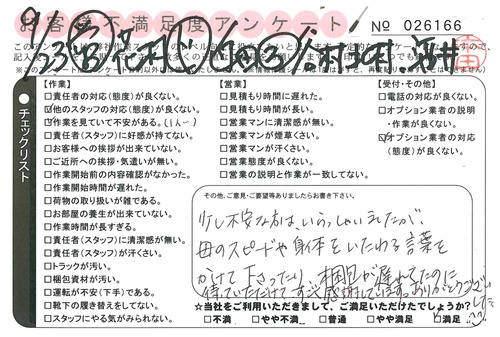 お客様不満足度アンケート
No 026166
チェックリスト
【作業】
□責任者の対応(態度)が良くない。
□他のスタッフの対応(態度)が良くない。
□作業を見ていて不安がある。(1人〜)
□責任者(スタッフ)に好感が持てない。
□お客様への挨拶が出来ていない。
□ご近所への挨拶・気遣いが無い。
□作業開始前の内容確認がなかった。
□作業開始時間が遅れた。
□荷物の取り扱いが雑である。
□お部屋の養生が出来ていない。
□作業時間が長すぎる。
□責任者(スタッフ)に清潔感が無い。
□責任者(スタッフ)が汗くさい。
□トラックが汚い。
□梱包資材が汚い。
□運転が不安(下手)である。
□靴下の履き替えをしてない。
□スタッフにやる気がみられない。
【営業】
□見積もり時間に遅れた。
□見積もり時間が長い。
□営業マンに清潔感が無い。
□営業マンが煙草くさい。
□営業マンが汗くさい。
□営業態度が良くない。
□営業の説明と作業が一致してない。
【受付・その他】
□電話の対応が良くない。
□オプション業者の説明
・作業が良くない。
□オプション業者の対応
(態度)が良くない。
その他、ご意見・ご要望等ありましたらお書き下さい。
少し不安な方は、いらっしゃいましたが、
母のスピードや身体をいたわる言葉を
かけて下さったり、梱包が遅れてたのに
待っていただけて すごく感謝しています。ありがとうござい
ました
☆当社をご利用いただきまして、ご満足いただけたでしょうか?
□不満 □やや不満 □普通 □やや満足 □満足